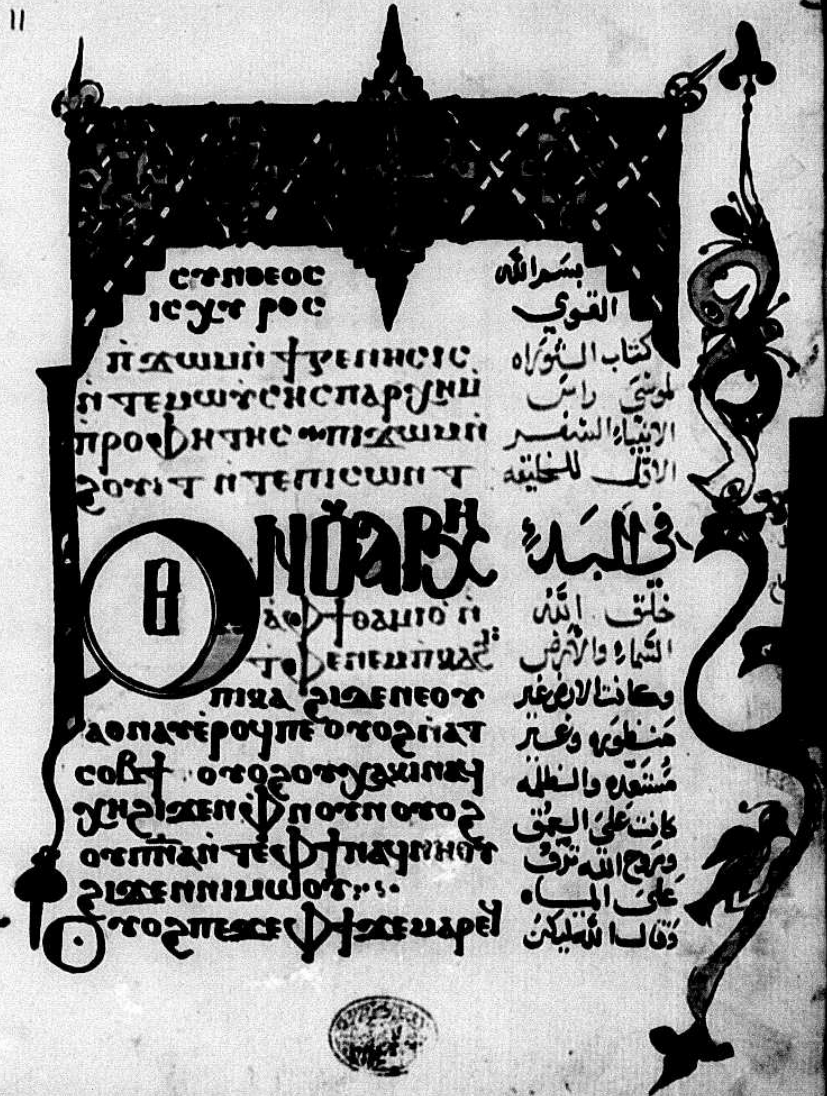 11
ⲥⲩⲛⲑⲉⲟⲥ
ⲓⲥⲭⲩⲣⲟⲥ
ⲡ̀ϫⲱⲙ ⲛ̀ϯⲅⲉⲛⲏⲥⲓⲥ
ⲛ̀ⲧⲉⲙⲱⲩⲥⲏⲥ ⲡⲁⲣⲭⲏⲙ̀
ⲡⲣⲟⲫⲏⲧⲏⲥ ⲡⲓϫⲱⲙ ⲙ̀
ϩⲟⲩⲓⲧ ⲛ̀ⲧⲉⲡⲓⲥⲱⲛⲧ
ⲚⲞⲨⲀⲢⲬⲎ
ⲁⲫϯ ⲑⲁⲙⲓⲟ ⲛ̀
ⲧⲫⲉ ⲛⲉⲙ ⲡⲕⲁϩⲓ:
ⲡⲓⲕⲁϩⲓ ⲇⲉ ⲛⲉ ⲟⲩ
ⲁⲑⲛⲁⲩ ⲉ̀ⲣⲟϥ ⲡⲉ ⲟⲩⲟϩ ⲛ̀ⲁⲧ
ⲥⲟⲃϯ ⲟⲩⲟϩ ⲟⲩⲭⲁⲕⲓ ⲛⲁϥ
ⲭⲏ ϩⲓϫⲉⲛ ⲫⲛⲟⲩⲛ ⲟⲩⲟϩ
ⲟⲩⲡ̅ⲛ̅ⲁ̅ ⲛ̀ⲧⲉ ⲫϯ ⲛⲁϥⲛⲏⲟⲩ
ϩⲓϫⲉⲛ ⲛⲓⲙⲱⲟⲩ
ⲟⲩⲟϩ ⲡⲉϫⲉ ⲫϯ ϫⲉ ⲙⲁⲣⲉϥ
بسم الله
القوي
كتاب التوراه
لموسى راس
الانبياء السفر
الاول للخليقه
في البدء
خلق الله
السماء والارض
وكانت الارض غير
منظوره وغير
مستعده والظلمه
كانت على العمق
وروح الله ترف
على المياه
وقال الله ليكن